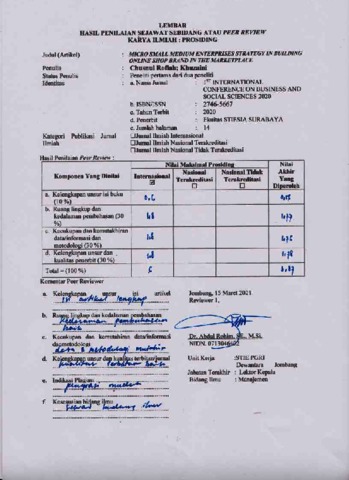 LEMBAR
HASIL PENILAIAN SEJAWAT SEBIDANG ATAU PEER REVIEW
KARYA ILMIAH : PROSIDING
Judul (Artikel) : MICRO SMALL MEDIUM ENTERPRISES STRATEGY IN BUILDING
ONLINE SHOP BRAND IN THE MARKETPLACE.
Penulis : Chusnul Rofiah; Khuzaini
Status Penulis : Penulis pertama dari dua penulis
Identitas : a. Nama Jurnal : 1ST INTERNATIONAL
CONFERENCE ON BUSINESS AND
SOCIAL SCIENCES 2020
b. ISBN/ISSN : 2746-5667
c. Tahun Terbit : 2020
d. Penerbit : STIESIA SURABAYA
e. Jumlah halaman : 14
Kategori Publikasi Jurnal Ilmiah
Jurnal Ilmiah Internasional
Jurnal Ilmiah Nasional Terakreditasi
Jurnal Ilmiah Nasional Tidak Terakreditasi
Hasil Penilaian Peer Review :
Komponen Yang Dinilai
Nilai Maksimal Prosiding
Internasional
Nasional Terakreditasi
Nasional Tidak Terakreditasi
Nilai Akhir Yang Diperoleh
a. Kelengkapan unsur isi buku
(10 %) 0,6
b. Ruang lingkup dan
kedalaman pembahasan (30
%) 1,8
c. Kecukupan dan kemutakhiran
data/informasi dan
metodologi (30 %) 1,8
d. Kelengkapan unsur dan
kualitas penerbit (30 %) 1,8
Total = (100 %) 6
Komentar Peer Reviewer
a. Kelengkapan unsur isi artikel
isi artikel lengkap
b. Ruang lingkup dan kedalaman pembahasan
kedalaman pembahasan
baik
c. Kecukupan dan kemutakhiran data/informasi
dan metodologi
data & metodologi mutakhir
d. Kelengkapan unsur dan kualitas terbitan/jurnal
baik
e. Indikasi Plagiasi
f. Kesesuaian bidang ilmu
sesuai bidang ilmu
Jombang, 15 Maret 2021
Reviewer 1,
Dr. Abdul Rohim, SE., M.Si.
Unit Kerja : STIE PGRI
Dewantara Jombang
Jabatan Terakhir : Lektor Kepala
Bidang Ilmu : Manajemen